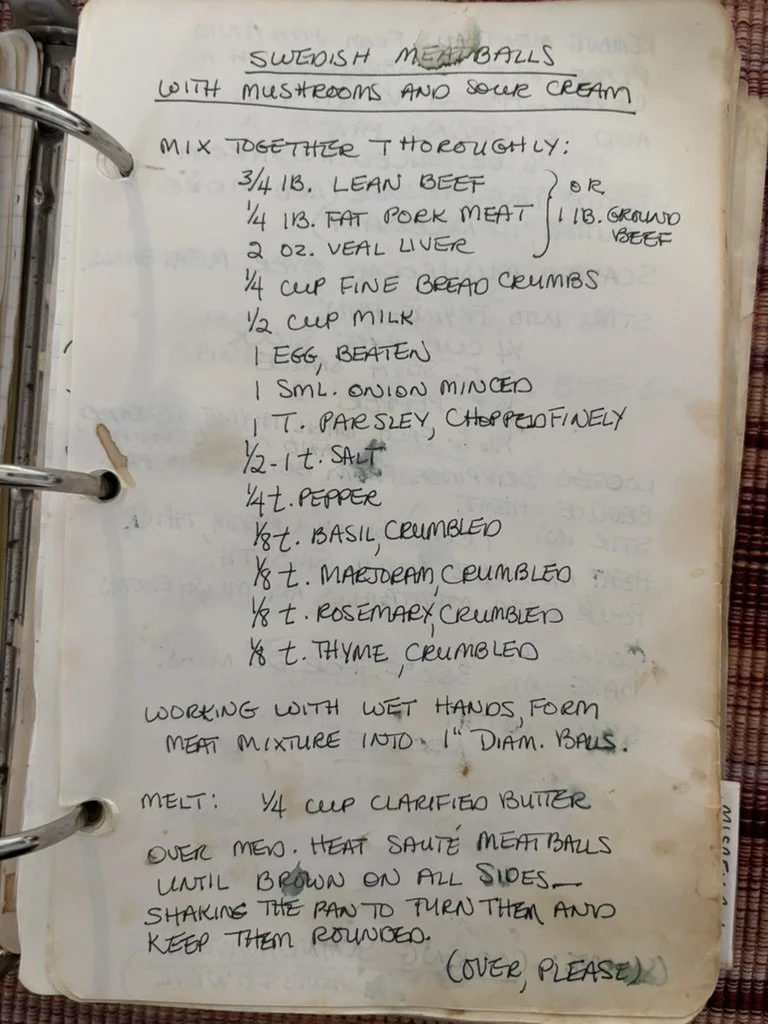 SWEDISH MEATBALLS
WITH MUSHROOMS AND SOUR CREAM
MIX TOGETHER THOROUGHLY:
3/4 lB. LEAN BEEF
1/4 lB. FAT PORK MEAT
2 OZ. VEAL LIVER
OR
1 lB. GROUND
BEEF
1/4 CUP FINE BREAD CRUMBS
1/2 CUP MILK
1 EGG, BEATEN
1 SML. ONION MINCED
1 T. PARSLEY, CHOPPED FINELY
1/2-1 t. SALT
1/4 t. PEPPER
1/8 t. BASIL, CRUMBLED
1/8 t. MARJORAM, CRUMBLED
1/8 t. ROSEMARY, CRUMBLED
1/8 t. THYME, CRUMBLED
WORKING WITH WET HANDS, FORM
MEAT MIXTURE INTO 1" DIAM. BALLS.
MELT: 1/4 CUP CLARIFIED BUTTER
OVER MED. HEAT SAUTÉ MEATBALLS
UNTIL BROWN ON ALL SIDES—
SHAKING THE PAN TO TURN THEM AND
KEEP THEM ROUNDED.
(OVER, PLEASE)